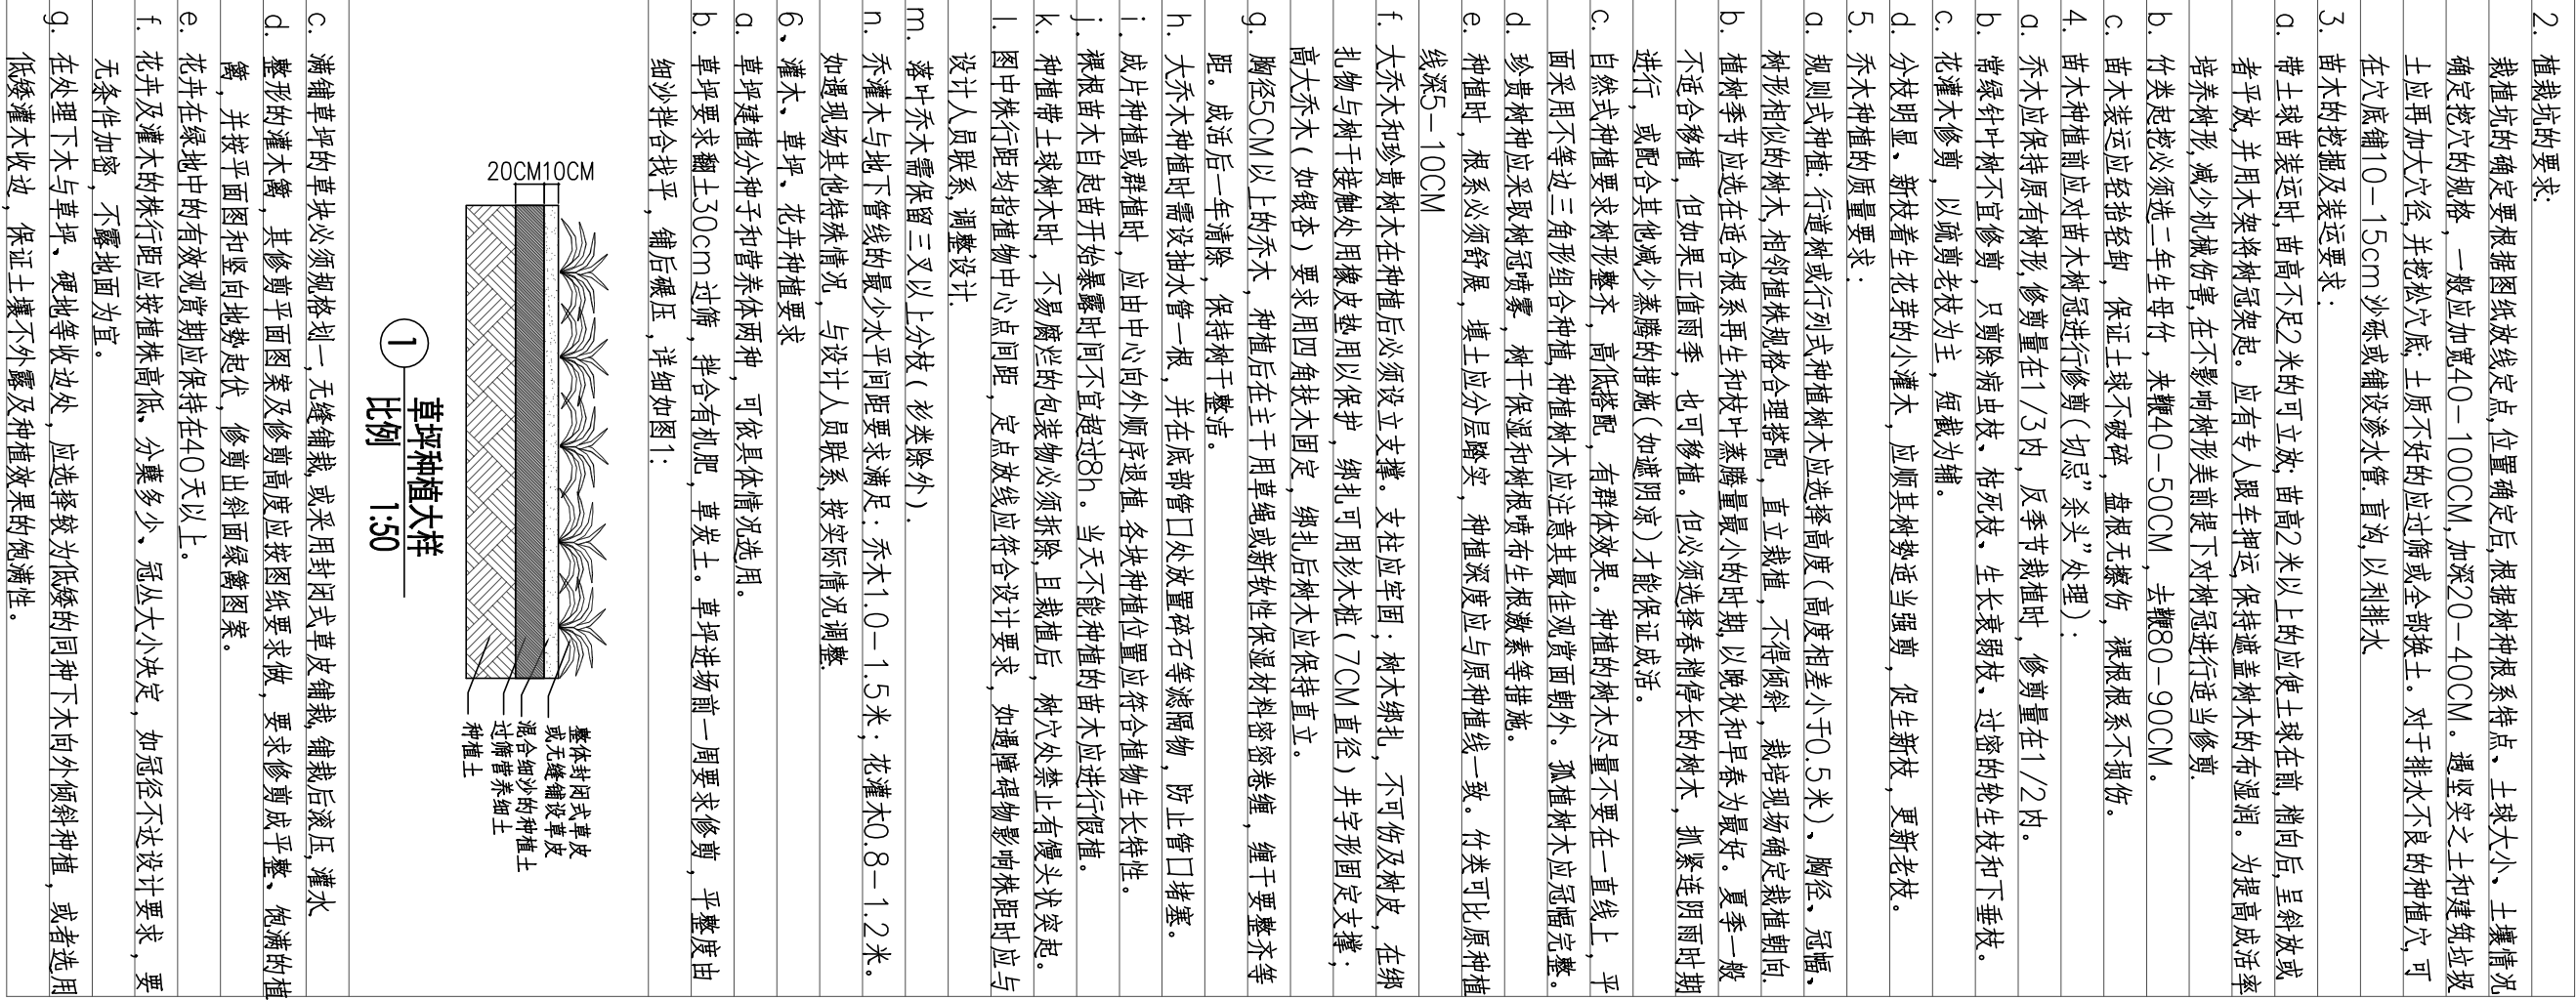 2. 植栽坑的要求:
栽植坑的确定要根据图纸放线定点,位置确定后,根据树种根系特点、土球大小、土壤情况
确定挖穴的规格，一般应加宽40-100CM,加深20-40CM。遇坚实之土和建筑垃圾
土应再加大穴径,并挖松穴底; 土质不好的应过筛或全部换土。对于排水不良的种植穴,可
在穴底铺10-15cm沙砾或铺设渗水管.盲沟,以利排水
3. 苗木的挖掘及装运要求：
a. 带土球苗装运时,苗高不足2米的可立放; 苗高2米以上的应使土球在前,稍向后,呈斜放或
者平放,并用木架将树冠架起。应有专人跟车押运,保持遮盖树木的布湿润。为提高成活率
培养树形,减少机械伤害,在不影响树形美前提下对树冠进行适当修剪.
b. 竹类起挖必须选二年生母竹，来鞭40-50CM，去鞭80-90CM。
c. 苗木装运应轻抬轻卸，保证土球不破碎，盘根无擦伤，裸根根系不损伤。
4. 苗木种植前应对苗木树冠进行修剪(切忌"杀头"处理)：
a. 乔木应保持原有树形,修剪量在1/3内，反季节栽植时，修剪量在1/2内。
b. 常绿针叶树不宜修剪，只剪除病虫枝、枯死枝、生长衰弱枝、过密的轮生枝和下垂枝。
c. 花灌木修剪，以疏剪老枝为主，短截为辅。
d. 分枝明显、新枝着生花芽的小灌木，应顺其树势适当强剪，促生新枝，更新老枝。
5. 乔木种植的质量要求：
a. 规则式种植: 行道树或行列式种植树木应选择高度(高度相差小于0.5米)、胸径、冠幅、
树形相似的树木,相邻植株规格合理搭配，直立栽植，不得倾斜，栽培现场确定栽植朝向.
b. 植树季节应选在适合根系再生和枝叶蒸腾量最小的时期,以晚秋和早春为最好。夏季一般
不适合移植，但如果正值雨季，也可移植。但必须选择春梢停长的树木，抓紧连阴雨时期
进行，或配合其他减少蒸腾的措施(如遮阴凉)才能保证成活。
c. 自然式种植要求树形整齐，高低搭配，有群体效果。种植的树木尽量不要在一直线上，平
面采用不等边三角形组合种植,种植树木应注意其最佳观赏面朝外。孤植树木应冠幅完整。
d. 珍贵树种应采取树冠喷雾，树干保湿和树根喷布生根激素等措施。
e. 种植时，根系必须舒展，填土应分层踏实，种植深度应与原种植线一致。竹类可比原种植
线深5-10CM
f. 大乔木和珍贵树木在种植后必须设立支撑。支柱应牢固；树木绑扎，不可伤及树皮，在绑
扎物与树干接触处用橡皮垫用以保护，绑扎可用杉木桩(7CM直径)井字形固定支撑；
高大乔木(如银杏)要求用四角扶木固定，绑扎后树木应保持直立。
g. 胸径5CM以上的乔木，种植后在主干用草绳或新软性保湿材料密密卷缠，缠干要整齐等
距。成活后一年清除，保持树干整洁。
h. 大乔木种植时需设抽水管一根,并在底部管口处放置碎石等滤隔物，防止管口堵塞。
i. 成片种植或群植时，应由中心向外顺序退植.各块种植位置应符合植物生长特性。
j. 裸根苗木自起苗开始暴露时间不宜超过8h。当天不能种植的苗木应进行假植。
k. 种植带土球树木时，不易腐烂的包装物必须拆除,且栽植后，树穴处禁止有馒头状突起。
l. 图中株行距均指植物中心点间距，定点放线应符合设计要求，如遇障碍物影响株距时应与
设计人员联系,调整设计.
m. 落叶乔木需保留三叉以上分枝(衫类除外).
n. 乔灌木与地下管线的最少水平间距要求满足：乔木1.0-1.5米；花灌木0.8-1.2米。
如遇现场其他特殊情况，与设计人员联系,按实际情况调整.
6、灌木、草坪、花卉种植要求
a. 草坪建植分种子和营养体两种，可依具体情况选用。
b. 草坪要求翻土30cm过筛，拌合有机肥，草炭土。草坪进场前一周要求修剪，平整度由
细沙拌合找平，铺后碾压,详细如图1:
20CM10CM
整体封闭式草皮
或无缝铺设草皮
混合细沙的种植土
过筛营养细土
种植土
1
草坪种植大样
比例 1:50
c. 满铺草坪的草块必须规格划一,无缝铺栽,或采用封闭式草皮铺栽,铺栽后滚压,灌水
d. 整形的灌木篱，其修剪平面图案及修剪高度应按图纸要求做，要求修剪成平整、饱满的植
篱，并按平面图和竖向地势起伏，修剪出斜面绿篱图案。
e. 花卉在绿地中的有效观赏期应保持在40天以上。
f. 花卉及灌木的株行距应按植株高低、分蘖多少、冠丛大小决定，如冠径不达设计要求，要
无条件加密，不露地面为宜。
g. 在处理下木与草坪、硬地等收边处，应选择较为低矮的同种下木向外倾斜种植，或者选用
低矮灌木收边，保证土壤不外露及种植效果的饱满性。